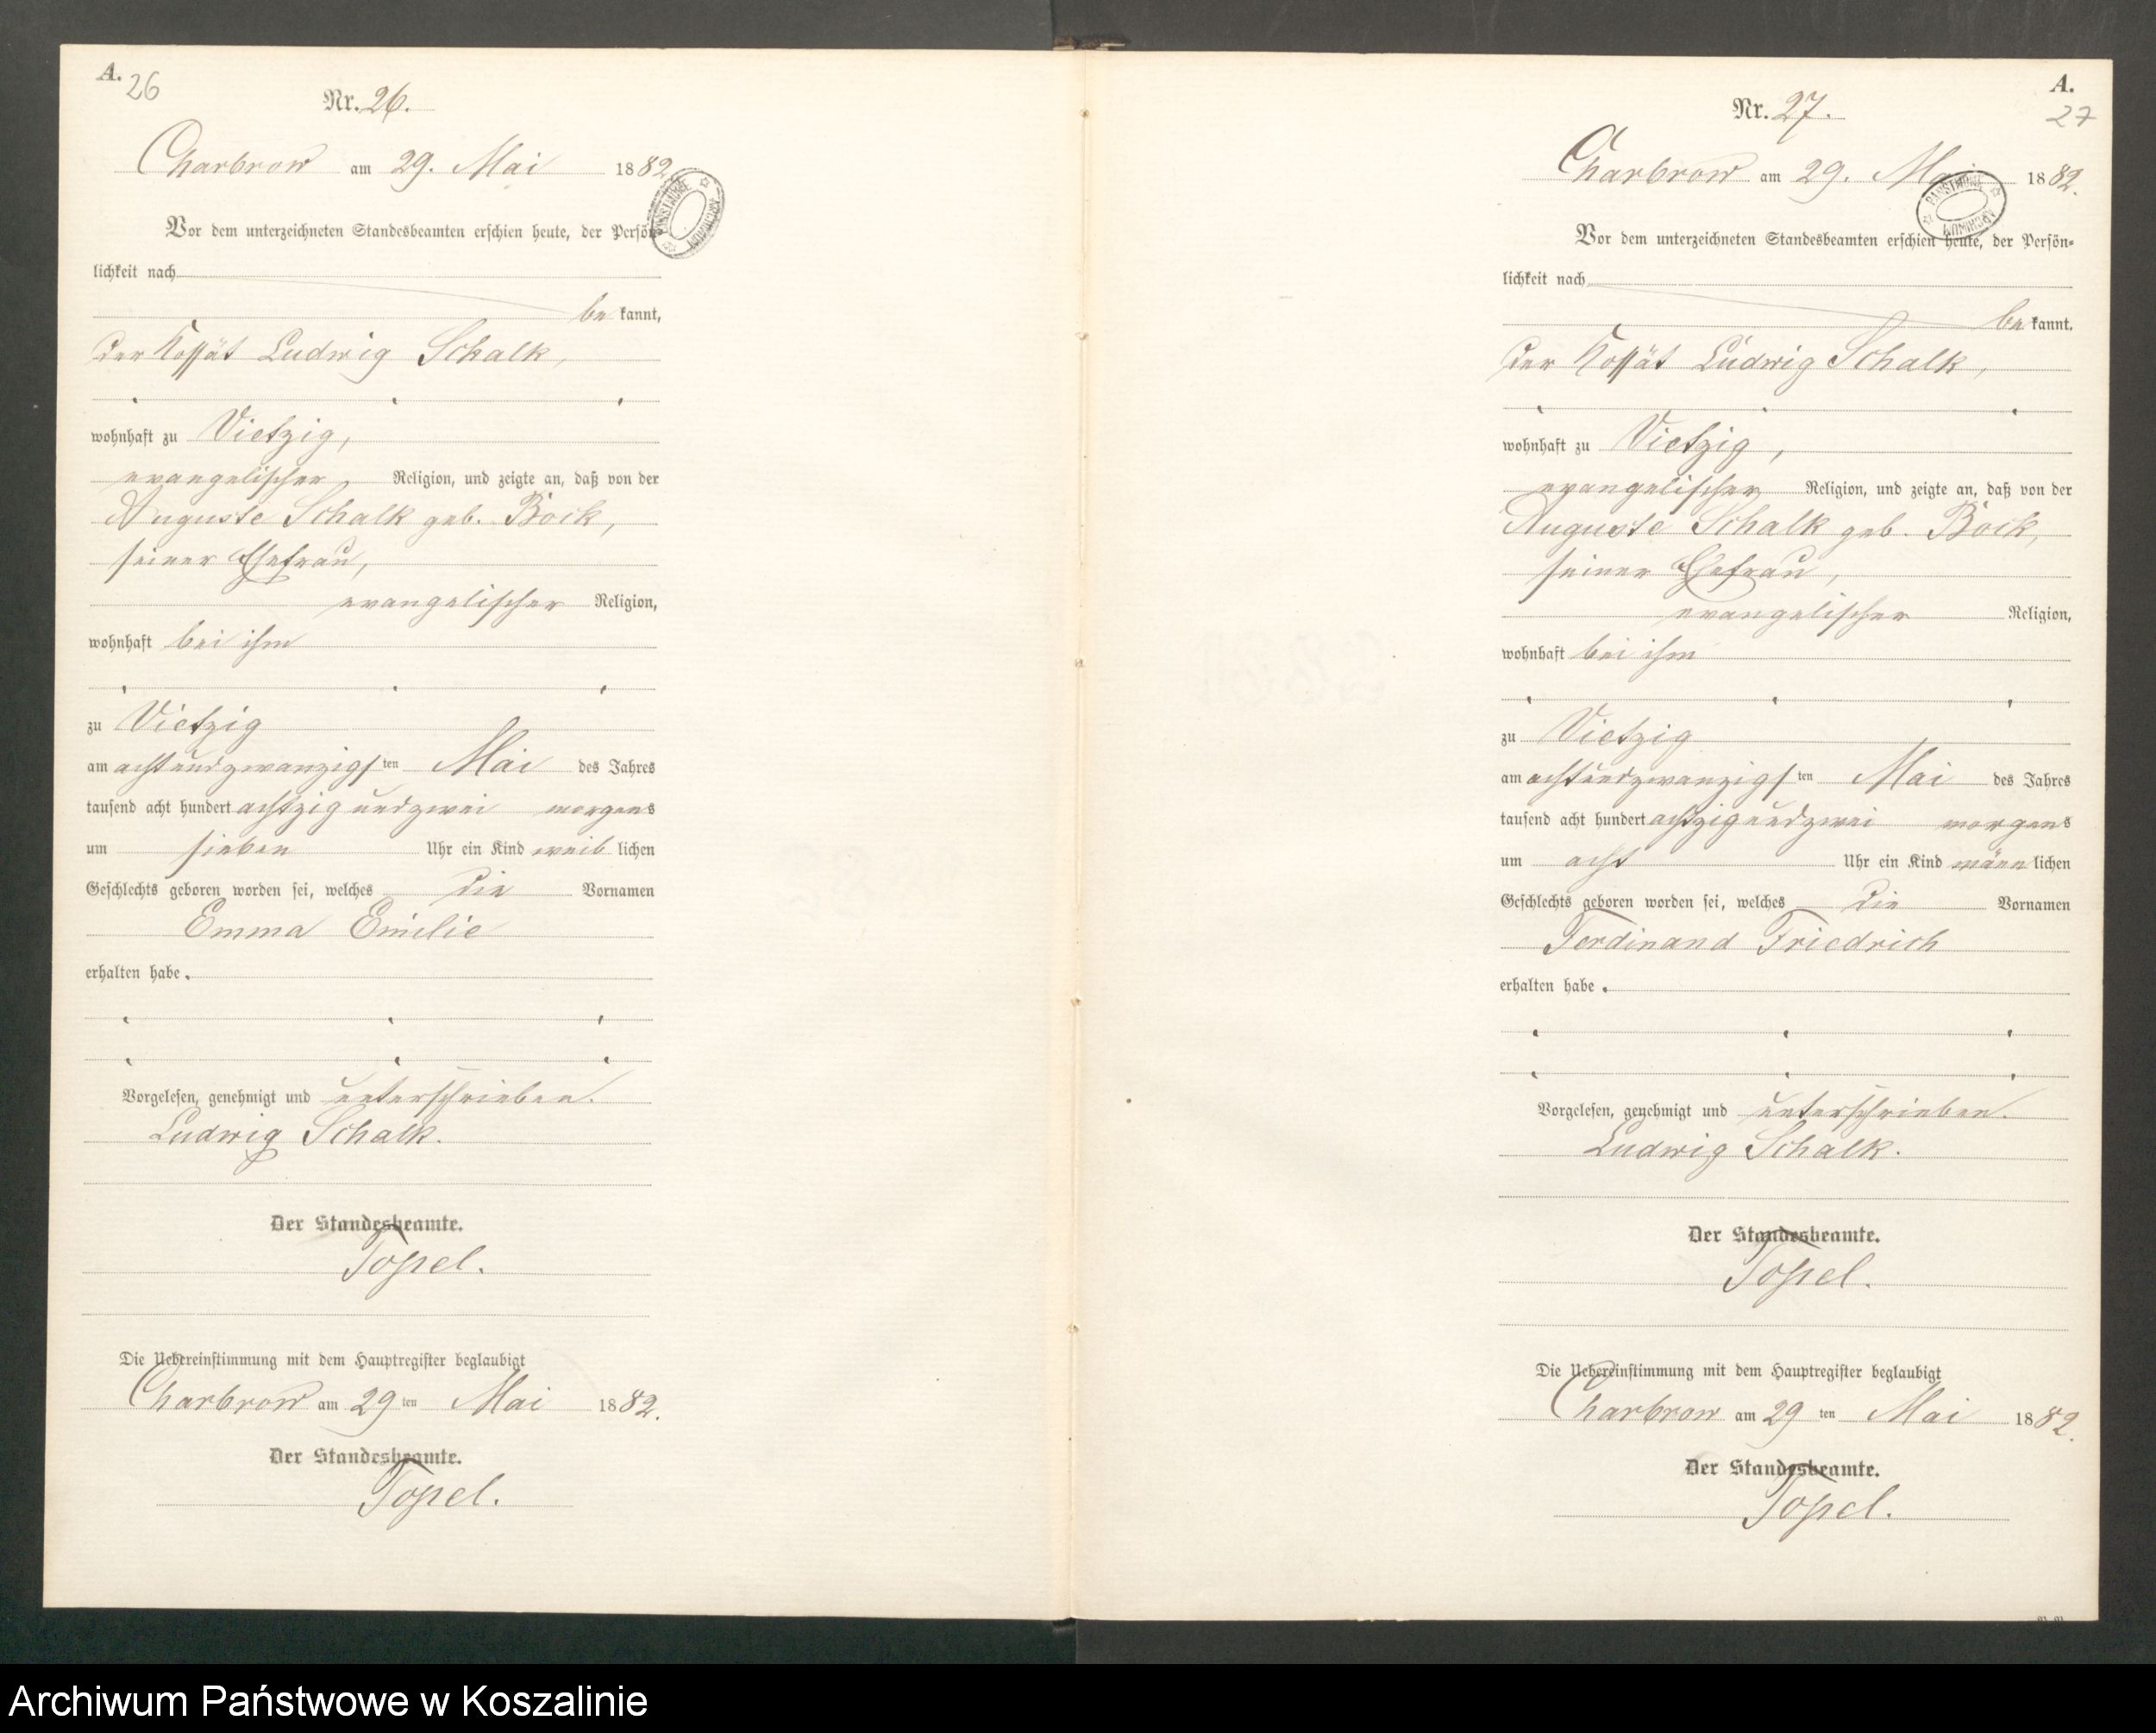 A. 26
Nr. 26.
Charbrow am 29. Mai 1882
Vor dem unterzeichneten Standesbeamten erschien heute, der Persön-
lichkeit nach
be kannt,
der Kossät Ludwig Schalk,
wohnhaft zu Vietzig,
evangelischer Religion, und zeigte an, daß von der
Auguste Schalk geb. Böck,
seiner Ehefrau,
evangelischer Religion,
wohnhaft bei ihm
zu Vietzig
am achtundzwanzigsten Mai des Jahres
tausend acht hundert achtzig und zwei morgens
um sieben Uhr ein Kind weib lichen
Geschlechts geboren worden sei, welches die Vornamen
Emma Emilie
erhalten habe.
Vorgelesen, genehmigt und unterschrieben.
Ludwig Schalk.
Der Standesbeamte.
Topel.
Die Uebereinstimmung mit dem Hauptregister beglaubigt
Charbrow am 29 ten Mai 1882.
Der Standesbeamte.
Topel.
A.
27
Nr. 27.
Charbrow am 29. Mai 1882.
Vor dem unterzeichneten Standesbeamten erschien heute, der Persön-
lichkeit nach
be kannt,
der Kossät Ludwig Schalk,
wohnhaft zu Vietzig,
evangelischer Religion, und zeigte an, daß von der
Auguste Schalk geb. Böck,
seiner Ehefrau,
evangelischer Religion,
wohnhaft bei ihm
zu Vietzig
am achtundzwanzigsten Mai des Jahres
tausend acht hundert achtzig und zwei morgens
um acht Uhr ein Kind männ lichen
Geschlechts geboren worden sei, welches die Vornamen
Ferdinand Friedrich
erhalten habe.
Vorgelesen, genehmigt und unterschrieben.
Ludwig Schalk.
Der Standesbeamte.
Topel.
Die Uebereinstimmung mit dem Hauptregister beglaubigt
Charbrow am 29 ten Mai 1882.
Der Standesbeamte.
Topel.
Archiwum Państwowe w Koszalinie